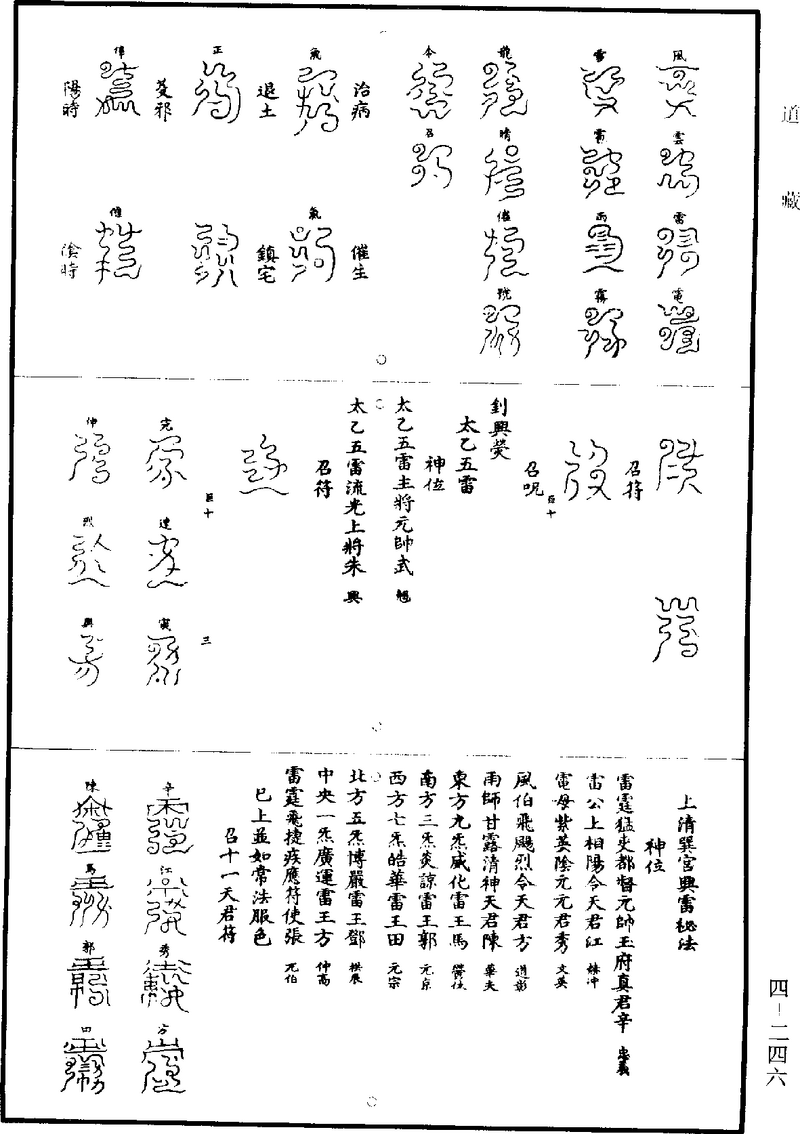 道藏
風
雲
雷
電
雪
雷
雨
霧
龍
晴
催
令
召
治病
催生
飛
氣
退土
鎮宅
正
菱邪
陽時
陰時
召符
召呪
釗興熒
太乙五雷
神位
太乙五雷主將元帥武 魁
太乙五雷流光上將朱 興
召符
完
達
寅
三
伸
烈
興
上清巽宮興雷祕法
神位
雷霆猛吏都督元帥玉府真君辛 忠義
雷公上相陽令天君江 赫冲
電母紫英陰元元君秀 文英
風伯飛颺烈令天君方 道彰
雨師甘露清神天君陳 華夫
東方九炁威化雷王馬
南方三炁炎諒雷王郭 元京
西方七炁皓華雷王田 元宗
北方五炁博嚴雷王鄧 拱辰
中央一炁廣運雷王方 仲高
雷霆飛捷疾應符使張 元伯
已上並如常法服色
召十一天君符
辛
江
秀
方
陳
馬
郭
田
四－二四六